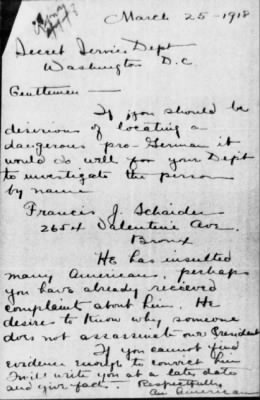 March 25 - 1918
Secret Service Dept
Washington D.C.
Gentlemen —
If you should be
desirious of locating a
dangerous pro-German it
would do well for your Dept
to investigate the person
by name
Francis J. Schaider
2654 Valentine Ave
Bronx
He has insulted
many Americans, perhaps
you have already recieved
complaint about him. He
desires to know why someone
does not assassinate our President
If you cannot find
evidence enough to convict him
I will write you at a later date
and give facts. Respectfully
An American